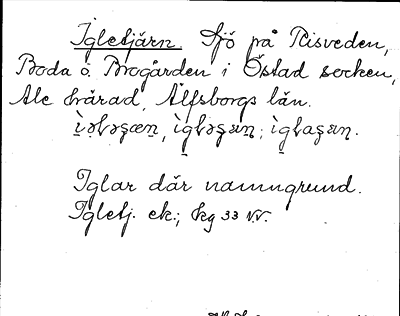 Igletjärn. Sjö på Risveden,
Boda o. Brogården i Östad socken,
Ale härad, Älfsborgs län.
Iglar där namngrund.
Igletj. ek.; kg 33 NV.